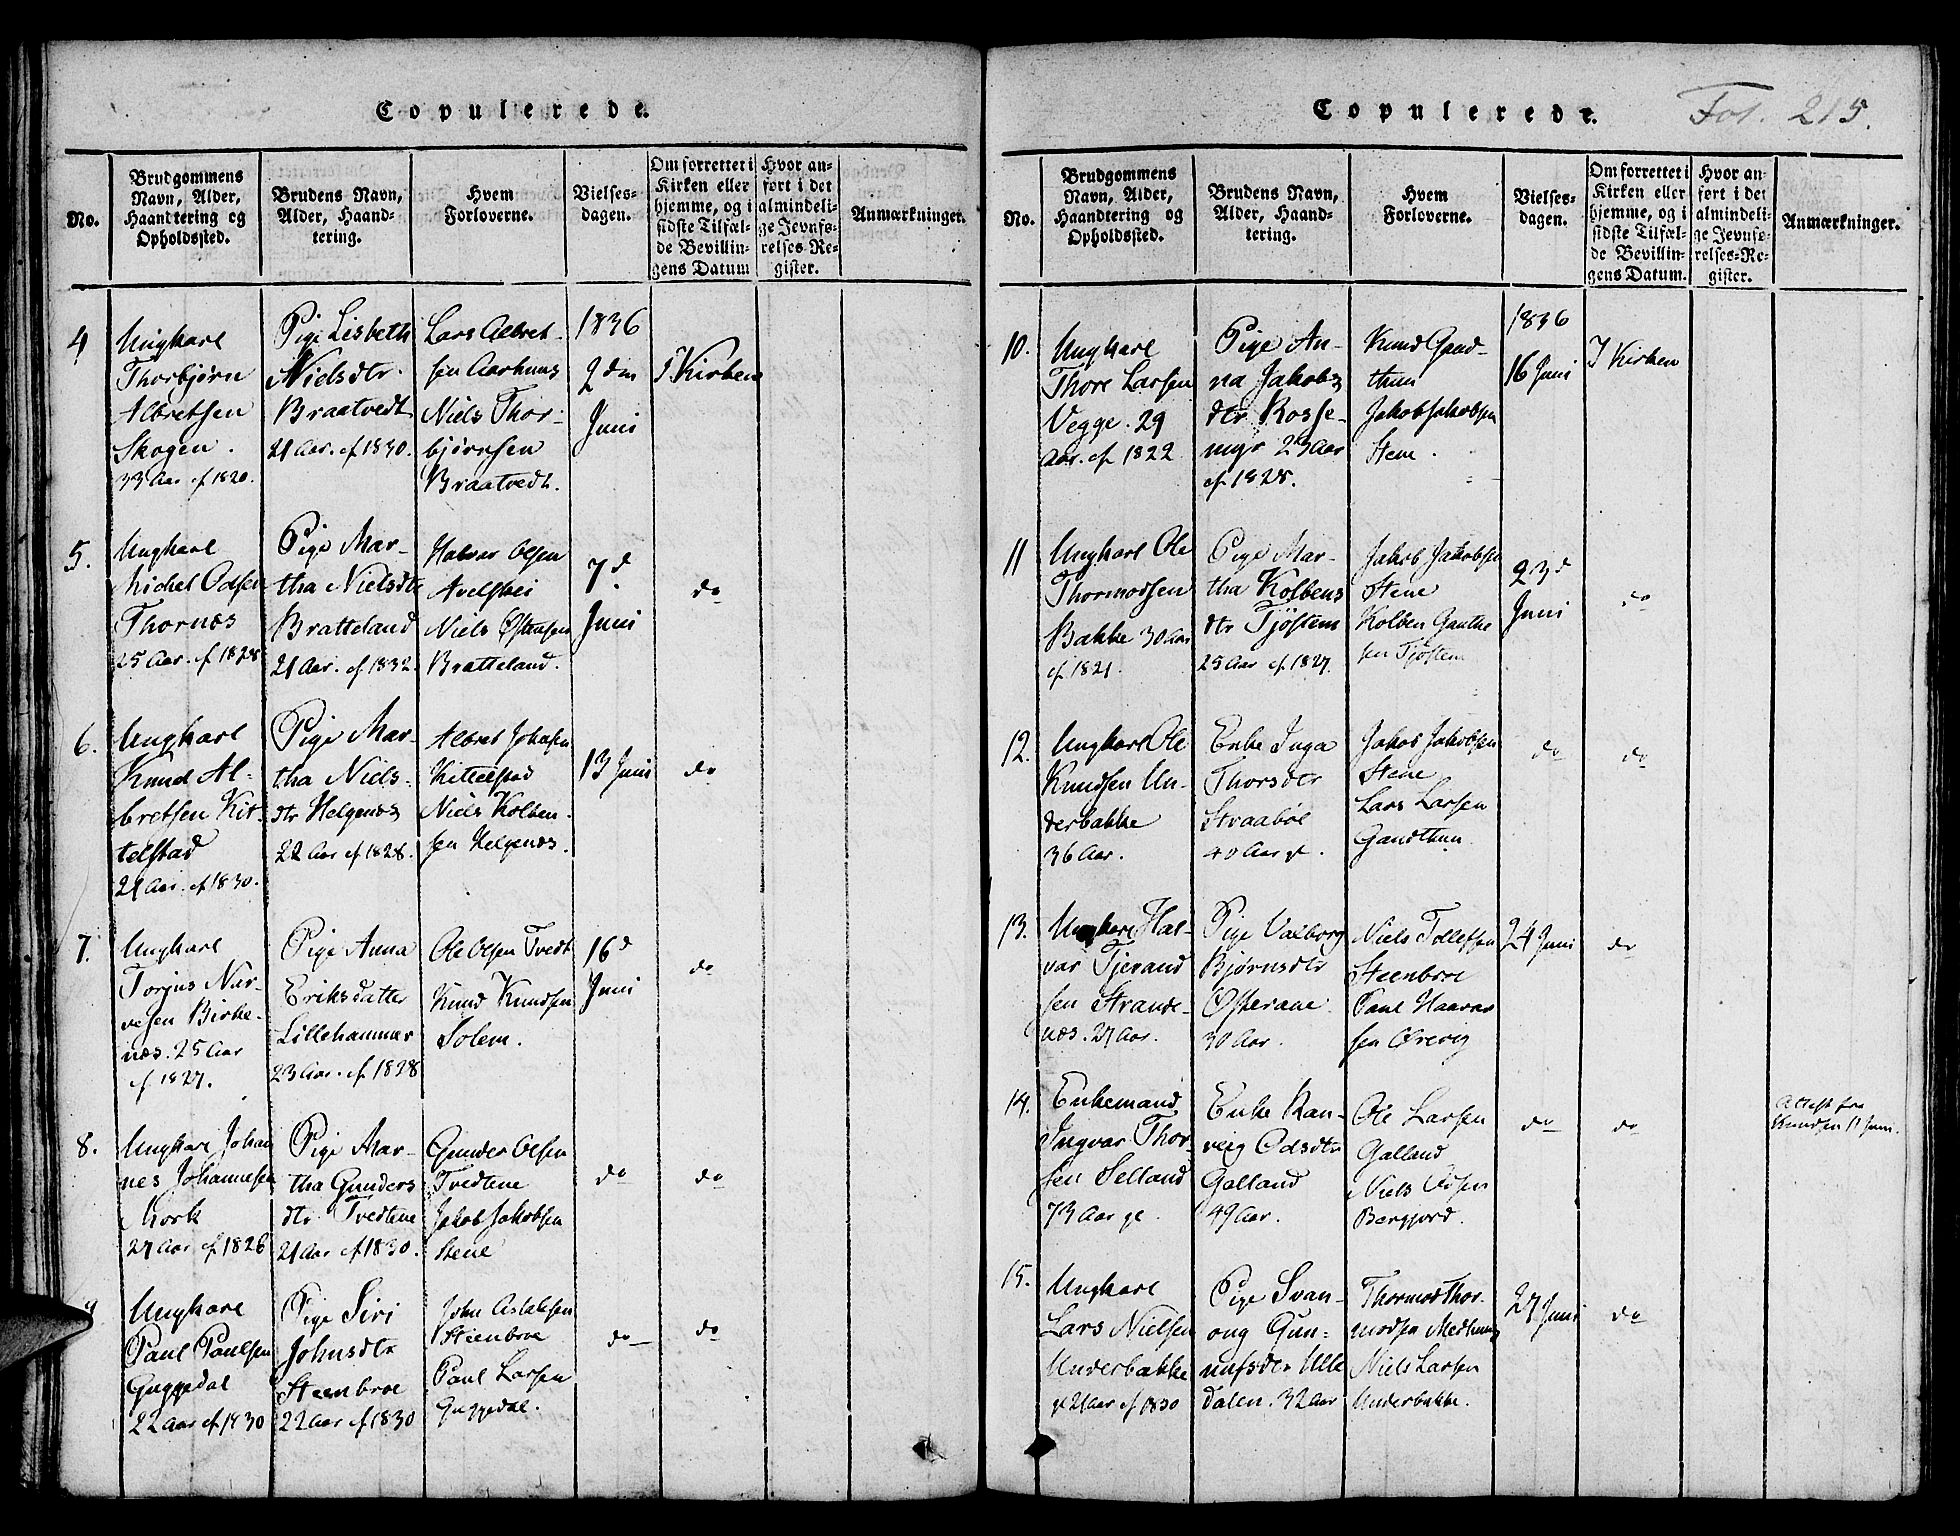 Copulerede.
No.
Brudgommens
Navn, Alder,
Haandtering og
Opholdssted.
Brudens Navn,
Alder, Haand-
tering.
Hvem
Forloverne.
Vielses-
dagen.
Om forrettet i
Kirken eller
hjemme, og i
sidste Tilfæl-
de Bevillin-
gens Datum
Hvor an-
ført i det
almindeli-
ge Jevnfø-
relses-Re-
gister.
Anmærkninger.
4
Ungkarl
Thorbjørn
Albretsen
Skogen.
33 Aar cf 1820.
Pige Lisbeth
Nielsdtr.
Braatvedt
21 Aar. cf 1830.
Lars Albret-
sen Aarhuus
Niels Thor-
bjørnsen
Braatvedt.
1836
2den
Juni
I Kirken
5.
Ungkarl
Michel Odsen
Thornæs
25 Aar. cf 1828
Pige Mar-
tha Nielsdtr
Bratteland
21 Aar. cf 1832.
Halvor Olsen
Niels Østensen
Bratteland.
7d
Juni
do
6.
Ungkarl
Knud Al-
bretsen Kit-
telstad
21 Aar. cf 1830.
Pige Mar-
tha Niels-
dtr Helgenæs
22 Aar cf 1828.
Albret Johnsen
Kittelstad
Niels Kolben-
sen Helgenæs.
13 Juni
do
7.
Ungkarl
Torjus Nar-
vesen Birke-
næs. 25 Aar
cf 1827.
Pige Anna
Eriksdatter
Lillehammer
23 Aar. cf 1828
Ole Olsen Tvedt
Knud Knudsen
Solem.
16d
Juni
do
8.
Ungkarl Johan
nes Johannesen
Mork
27 Aar cf 1826
Pige Mar-
tha Gunders
dtr Tvedtene
21 Aar cf 1830.
Gunder Olsen
Tvedtene
Jakob Jakobsen
Stene
do
do
9
Ungkarl
Paul Paulsen
Guggedal
22 Aar cf 1830
Pige Siri
Johnsdtr
Steenbroe
22 Aar cf 1830
John Aslaksen
Steenbroe
Paul Larsen
Guggedal.
do
do
Copulerede.
Fol. 215.
No.
Brudgommens
Navn, Alder,
Haandtering og
Opholdssted.
Brudens Navn,
Alder, Haand-
tering.
Hvem
Forloverne.
Vielses-
dagen.
Om forrettet i
Kirken eller
hjemme, og i
sidste Tilfæl-
de Bevillin-
gens Datum.
Hvor an-
ført i det
almindeli-
ge Jevnfø-
relses-Re-
gister.
Anmærkninger.
10.
Ungkarl
Thore Larsen
Vegge. 29
Aar. cf 1822
Pige An-
na Jakobs
dtr Rosse-
myr 23 Aar
cf 1828.
Knud Gand-
thun
Jakob Jakobsen
Stene.
1836
16 Juni
I Kirken
11
Ungkarl Ole
Thormodsen
Bakke 30 Aar
cf 1821.
Pige Mar-
tha Kolbens
dtr Tjöstem
25 Aar cf 1827.
Jakob Jakobsen
Stene
Kolben Gauthe
sen Tjöstem
23d
Juni
do
12.
Ungkarl Ole
Knudsen Un-
derbakke
36 Aar.
Enke Inga
Thorsdtr
Straabøe
40 Aar gl.
Jakob Jakobsen
Stene
Lars Larsen
Gandthun
do
do
13.
Ungkarl Hal-
vor Tjerand
sen Strande-
næs. 27 Aar.
Pige Valborg
Bjørnsdtr
Østerane
30 Aar.
Niels Tollefsen
Steenbroe
Paul Haavar
sen Ørevig
24 Juni
do
14.
Enkemand
Ingvar Thor-
sen Selland
73 Aar gl.
Enke Ran-
veig Odsdtr
Galland
49 Aar.
Ole Larsen
Galland
Niels Odsen
Bergjord.
do
do
Attest fra
Knudsen 11 Juni.
15.
Ungkarl
Lars Nielsen
Underbakke
gl 21 Aar cf 1830
Pige Svan-
oug Gun-
nufsdtr Ulle
dalen. 32 Aar
Thormod Thor-
modsen Medhuug
Niels Larsen
Underbakke.
27 Juni
do